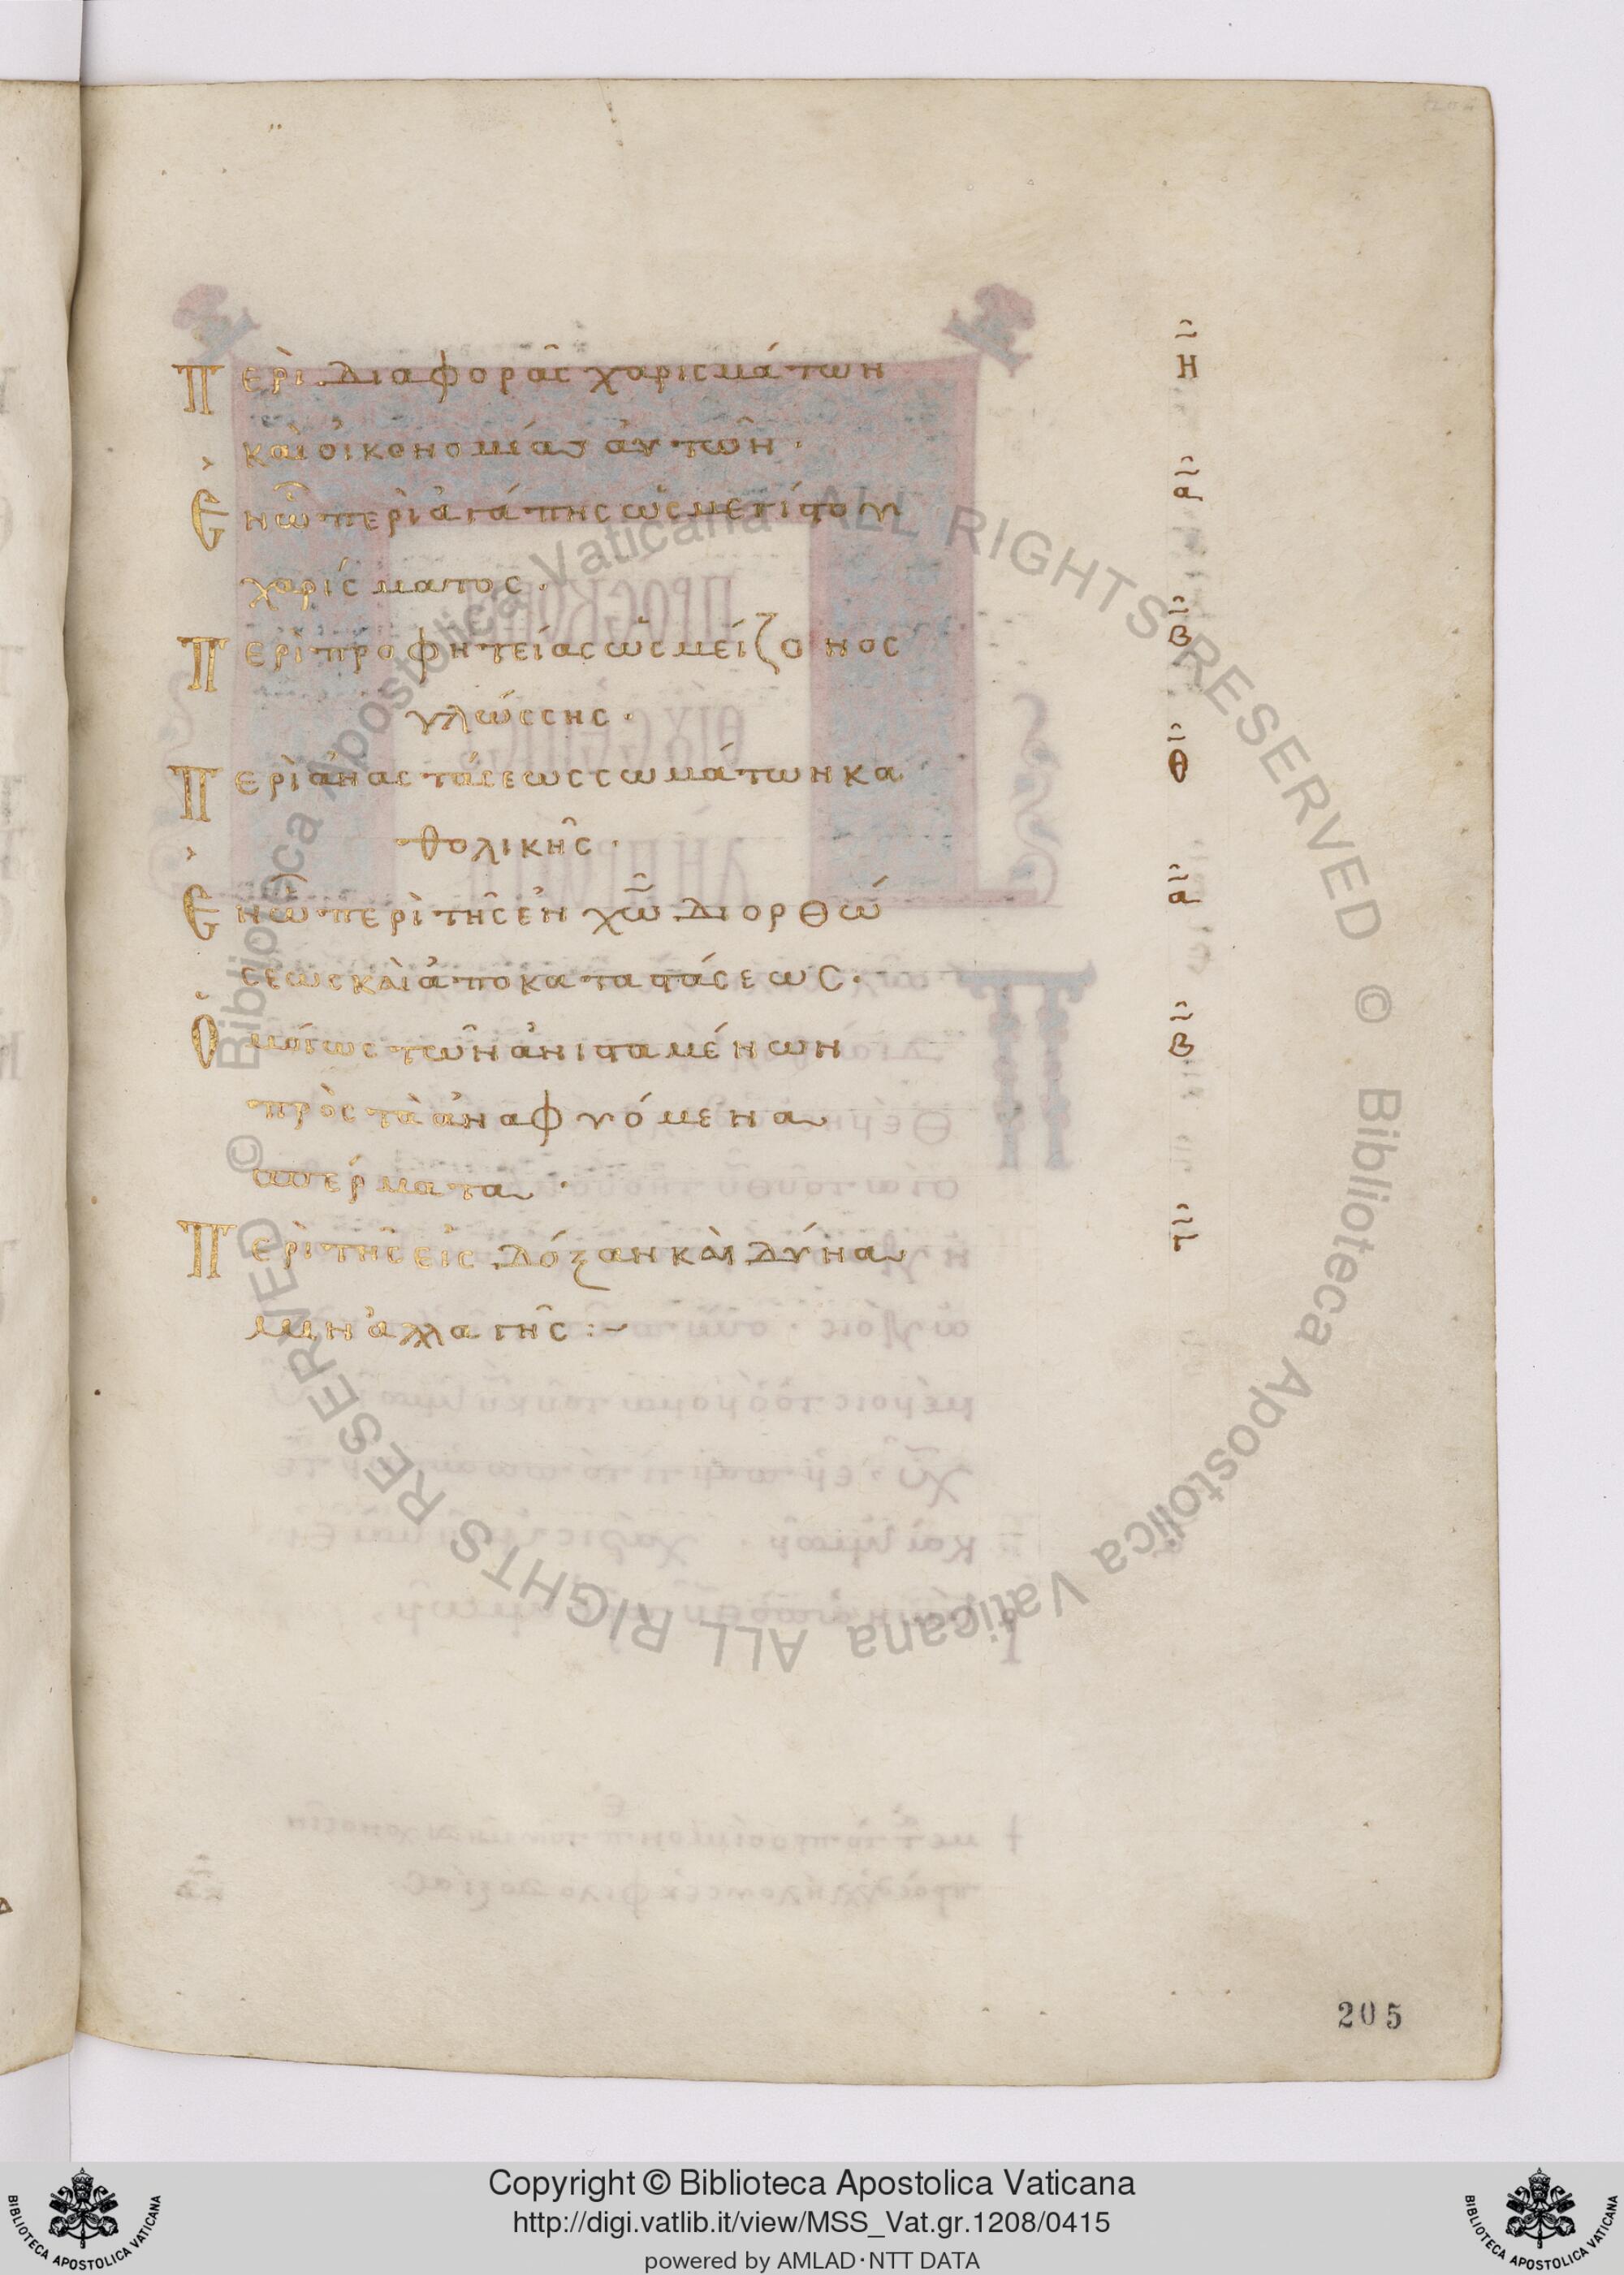 Περὶ διαφορᾶς χαρισμάτων Η
καὶ οἰκονομίας αὐτῶν·
Ἐν ὧ περὶ ἀγάπης ὡς μεγίστου α
χαρίσματος·
Περὶ προφητείας ὡς μείζονος β
γλώσσης·
Περὶ ἀναστάσεως σωμάτων κα Θ
θολικῆς·
Ἐν ὧ περὶ τῆς ἐν χω διορθώ α
σεως καὶ ἀποκαταστάσεως·
Ὁμοίως τῶν ἀνισταμένων β
πρὸς τὰ ἀναφυόμενα
σπέρματα·
Περὶ τῆς εἰς δόξαν καὶ δύνα γ
μιν ἀλλαγῆς :~
205
Copyright © Biblioteca Apostolica Vaticana
http://digi.vatlib.it/view/MSS_Vat.gr.1208/0415
powered by AMLAD·NTT DATA
BIBLIOTECA APOSTOLICA VATICANA
BIBLIOTECA APOSTOLICA VATICANA
© Biblioteca Apostolica Vaticana ALL RIGHTS RESERVED
© Biblioteca Apostolica Vaticana ALL RIGHTS RESERVED